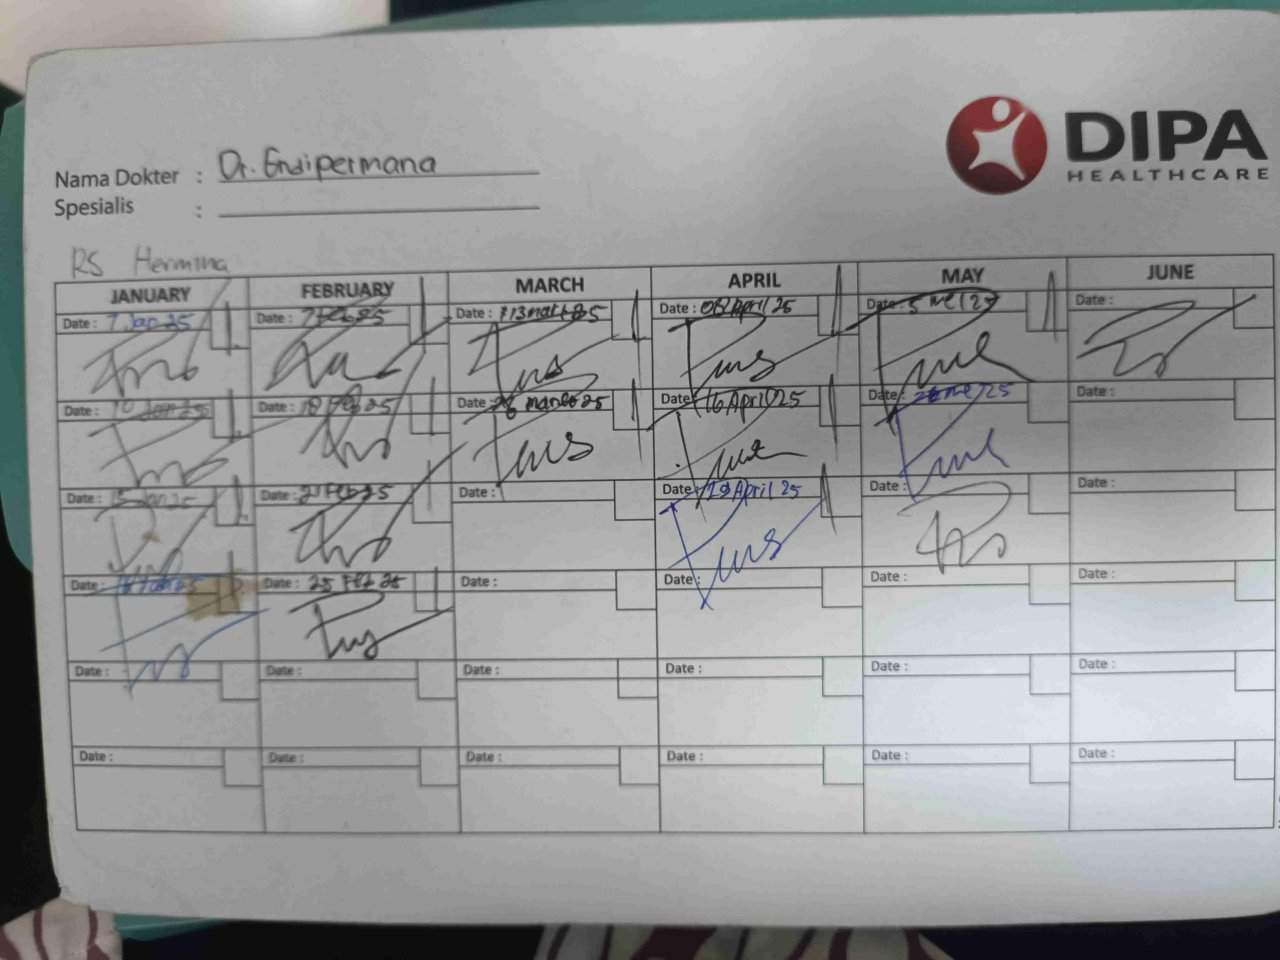 DIPA
HEALTHCARE
Nama Dokter : Dr. Endipermana
Spesialis :
RS Hermina
JANUARY FEBRUARY MARCH APRIL MAY JUNE
Date : 7 Jan 25 Date : 7 Feb 25 Date : 13 maret 25 Date : 08 April 25 Date : 5 mei 25 Date :
Date : 10 Jan 25 Date : 18 Feb 25 Date : 26 maret 25 Date : 16 April 25 Date : mei 25 Date :
Date : Jan 25 Date : 21 Feb 25 Date : Date : 29 April 25 Date : Date :
Date : Date : 25 Feb 25 Date : Date : Date : Date :
Date : Date : Date : Date : Date : Date :
Date : Date : Date : Date : Date : Date :